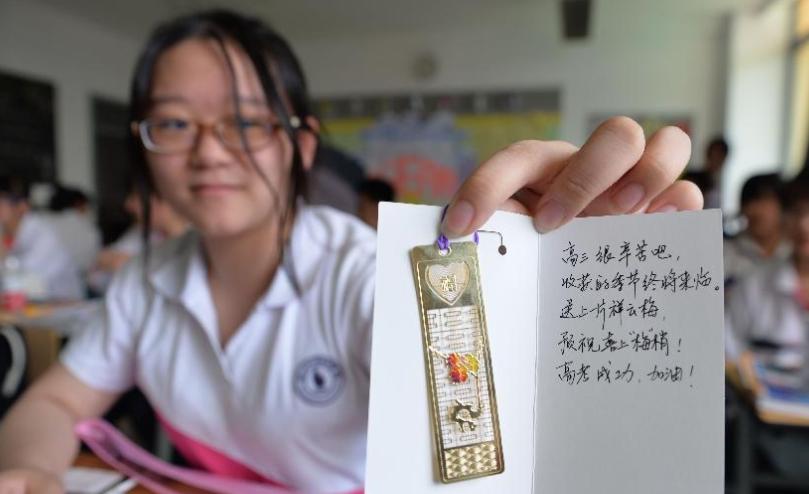 高三很辛苦吧,
收获的季节终将来临。
送上片祥云梅,
预祝喜上“梅”梢!
高考成功,加油!